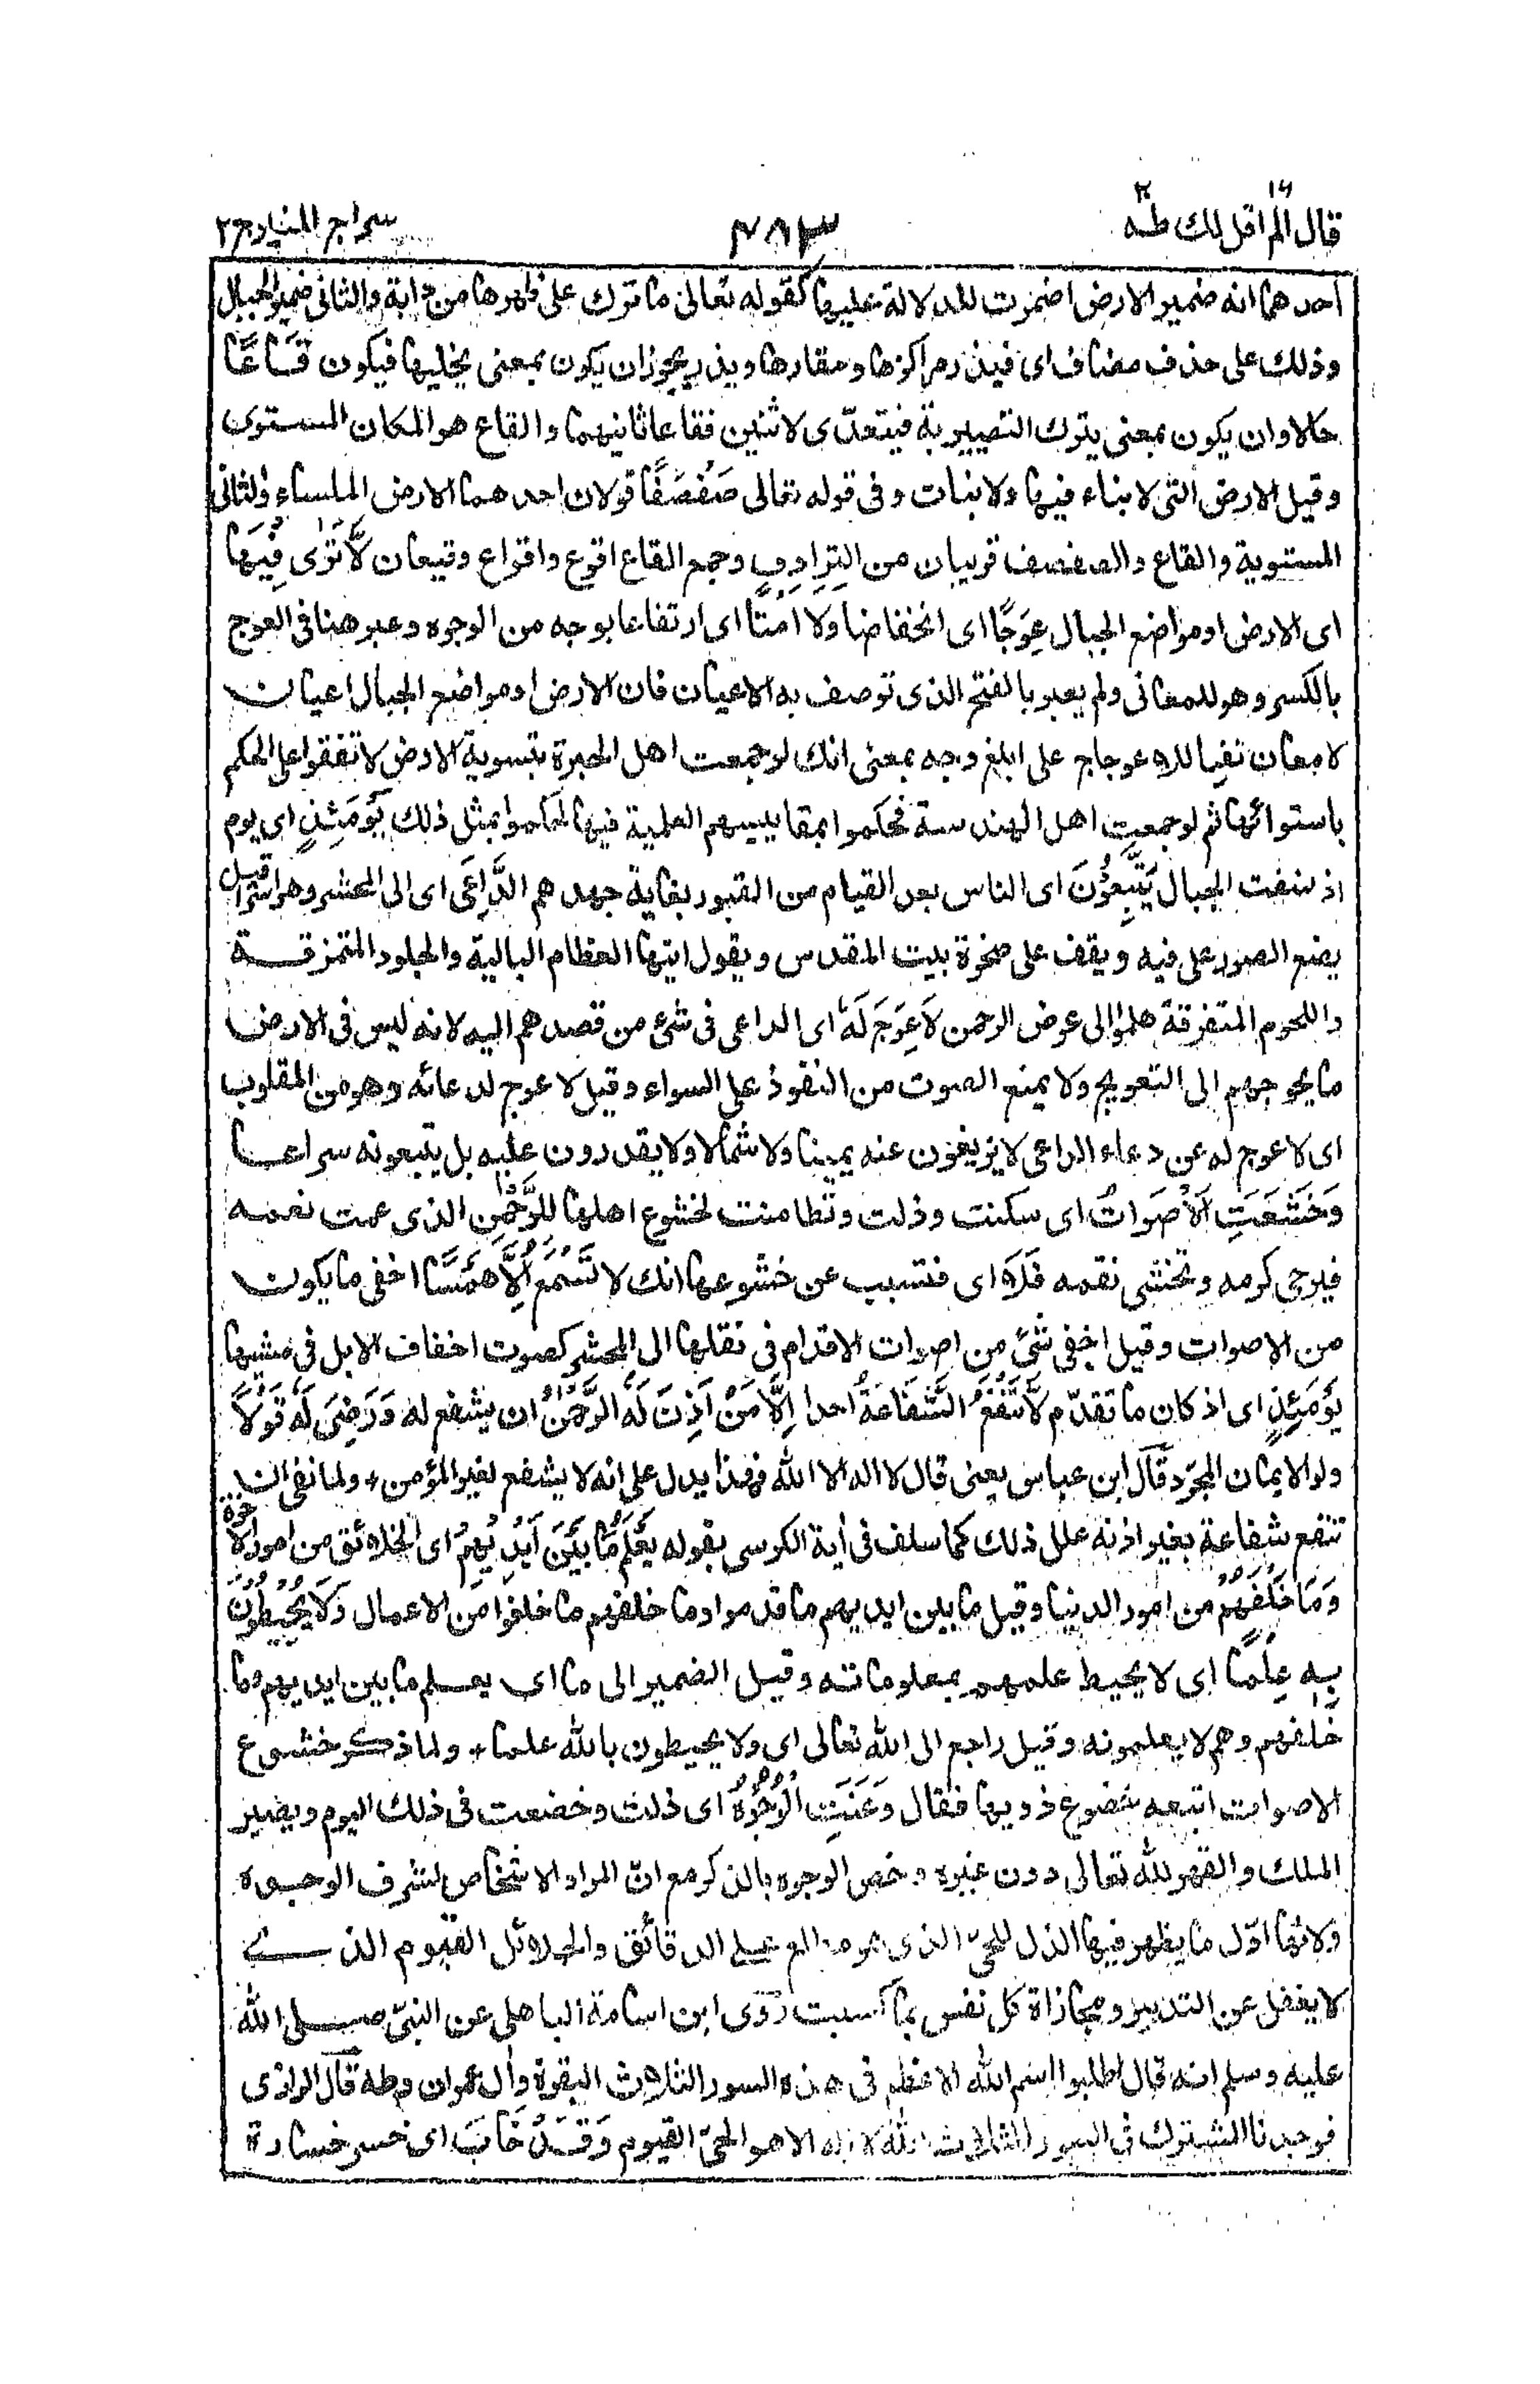 قال الم اقل لك طه
٤٨٣
سراج المنير ج ٢
احدهما انه ضمير الارض اضمرت للدلالة عليها كقوله تعالى ما ترك على ظهرها من دابة والثانى ضمير الجبال
وذلك على حذف مضاف اى فيذر مراكزها ومقارها ويذر يجوز ان يكون بمعنى يخليها فيكون قَاعًا
حالا وان يكون بمعنى يترك التصييرية فيتعدّى لاثنين فقاعا ثانيهما والقاع هو المكان المستوى
وقيل الارض التى لا بناء فيها ولا نبات وفى قوله تعالى صَفْصَفًا قولان احدهما الارض الملساء والثانى
المستوية والقاع والصفصف قريبان من الترادف وجمع القاع اقوع واقواع وقيعان لَّا تَرٰى فِيْهَا
اى الارض او مواضع الجبال عِوَجًا اى انخفاضا وَلَا اَمْتًا اى ارتفاعا بوجه من الوجوه وعبر هنا فى العوج
بالكسر وهو للمعانى ولم يعبر بالفتح الذى توصف به الاعيان فان الارض او مواضع الجبال اعيان
لا معان نفيا للاعوجاج على ابلغ وجه بمعنى انك لو جمعت اهل الخبرة بتسوية الارض لاتفقوا على الحكم
باستوائها ثم لو جمعت اهل الهندسة فحكموا بمقاييسهم العلمية فيها لحكموا بمثل ذلك يَوْمَئِذٍ اى يوم
اذ نسفت الجبال يَتَّبِعُوْنَ اى الناس بعد القيام من القبور بغاية جهدهم الدَّاعِيَ اى الى المحشر وهو اسرافيل
يضع الصور على فيه ويقف على صخرة بيت المقدس ويقول ايتها العظام البالية والجلود المتمزقة
واللحوم المتفرقة هلموا الى عرض الرحمن لَا عِوَجَ لَهٗ اى الداعى فى شئ من قصدهم اليه لانه ليس فى الارض
ما يحوجهم الى التعويج ولا يمنع الصوت من النفوذ على السواء وقيل لا عوج لدعائه وهو من المقلوب
اى لا عوج لهم عن دعاء الداعى لا يزيغون عنه يمينا ولا شمالا ولا يقدرون عليه بل يتبعونه سراعا
وَخَشَعَتِ الْاَصْوَاتُ اى سكنت وذلت وتطامنت لخشوع اهلها لِلرَّحْمٰنِ الذى عمت نعمه
فيرجى كرمه وتخشى نقمه فَلَا اى فتسبب عن خشوعها انك لا تَسْمَعُ اِلَّا هَمْسًا اخفى ما يكون
من الاصوات وقيل اخفى شئ من اصوات الاقدام فى نقلها الى المحشر كصوت اخفاف الابل فى مشيها
يَوْمَئِذٍ اى اذ كان ما تقدّم لَّا تَنْفَعُ الشَّفَاعَةُ احدا اِلَّا مَنْ اَذِنَ لَهُ الرَّحْمٰنُ ان يشفع له وَرَضِيَ لَهٗ قَوْلًا
ولو الايمان المجرّد قال ابن عباس يعنى قال لا اله الا الله فهذا يدل على انه لا يشفع لغير المؤمن ٭ ولما نفى ان
تنفع شفاعة بغير اذنه علل ذلك كما سلف فى أية الكرسى بقوله يَعْلَمُ مَا بَيْنَ اَيْدِيْهِمْ اى الخلائق من امور الاخرة
وَمَا خَلْفَهُمْ من امور الدنيا وقيل ما بين ايديهم ما قدموا وما خلفهم ما خلفوا من الاعمال وَلَا يُحِيْطُوْنَ
بِهٖ عِلْمًا اى لا يحيط علمهم بمعلوماته وقيل الضمير الى ما اى يعلم ما بين ايديهم وما
خلفهم وهم لا يعلمونه وقيل راجع الى الله تعالى اى ولا يحيطون بالله علما ٭ ولما ذكر خشوع
الاصوات اتبعه خضوع ذويها فقال وَعَنَتِ الْوُجُوْهُ اى ذلت وخضعت فى ذلك اليوم ويصير
الملك والقهر لله تعالى دون غيره وخص الوجوه بالذكر مع انّ المراد الاشخاص لشرف الوجوه
ولانها اوّل ما يظهر فيها الذل للحىّ الذى هو مطلع على الدقائق والجلائل القيوم الذى
لا يغفل عن التدبير ومجازاة كل نفس بما كسبت روى ابن اسامة الباهلى عن النبىّ صلى الله
عليه وسلم انه قال اطلبوا اسم الله الاعظم فى هذه السور الثلاث البقرة وأل عمران وطه قال الرازى
فوجدنا المشترك فى السور الثلاث الله لا اله الا هو الحىّ القيوم وَقَدْ خَابَ اى خسر خسارة